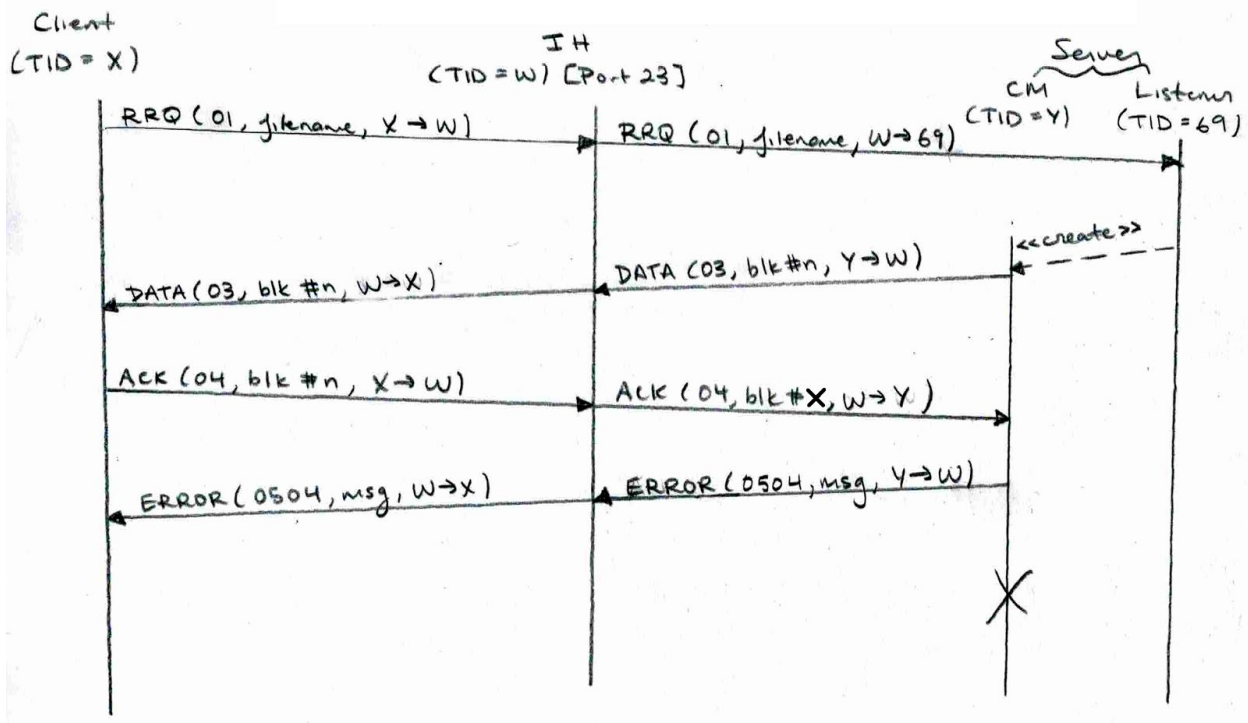 Client
(TID = X)
IH
(TID = W) [Port 23]
Server
CM
(TID=Y)
Listener
(TID=69)
RRQ (01, filename, X→W)
RRQ (01, filename, W→69)
<<create>>
DATA (03, blk #n, Y→W)
DATA (03, blk #n, W→X)
ACK (04, blk #n, X→W)
ACK (04, blk #X, W→Y)
ERROR (0504, msg, Y→W)
ERROR (0504, msg, W→X)